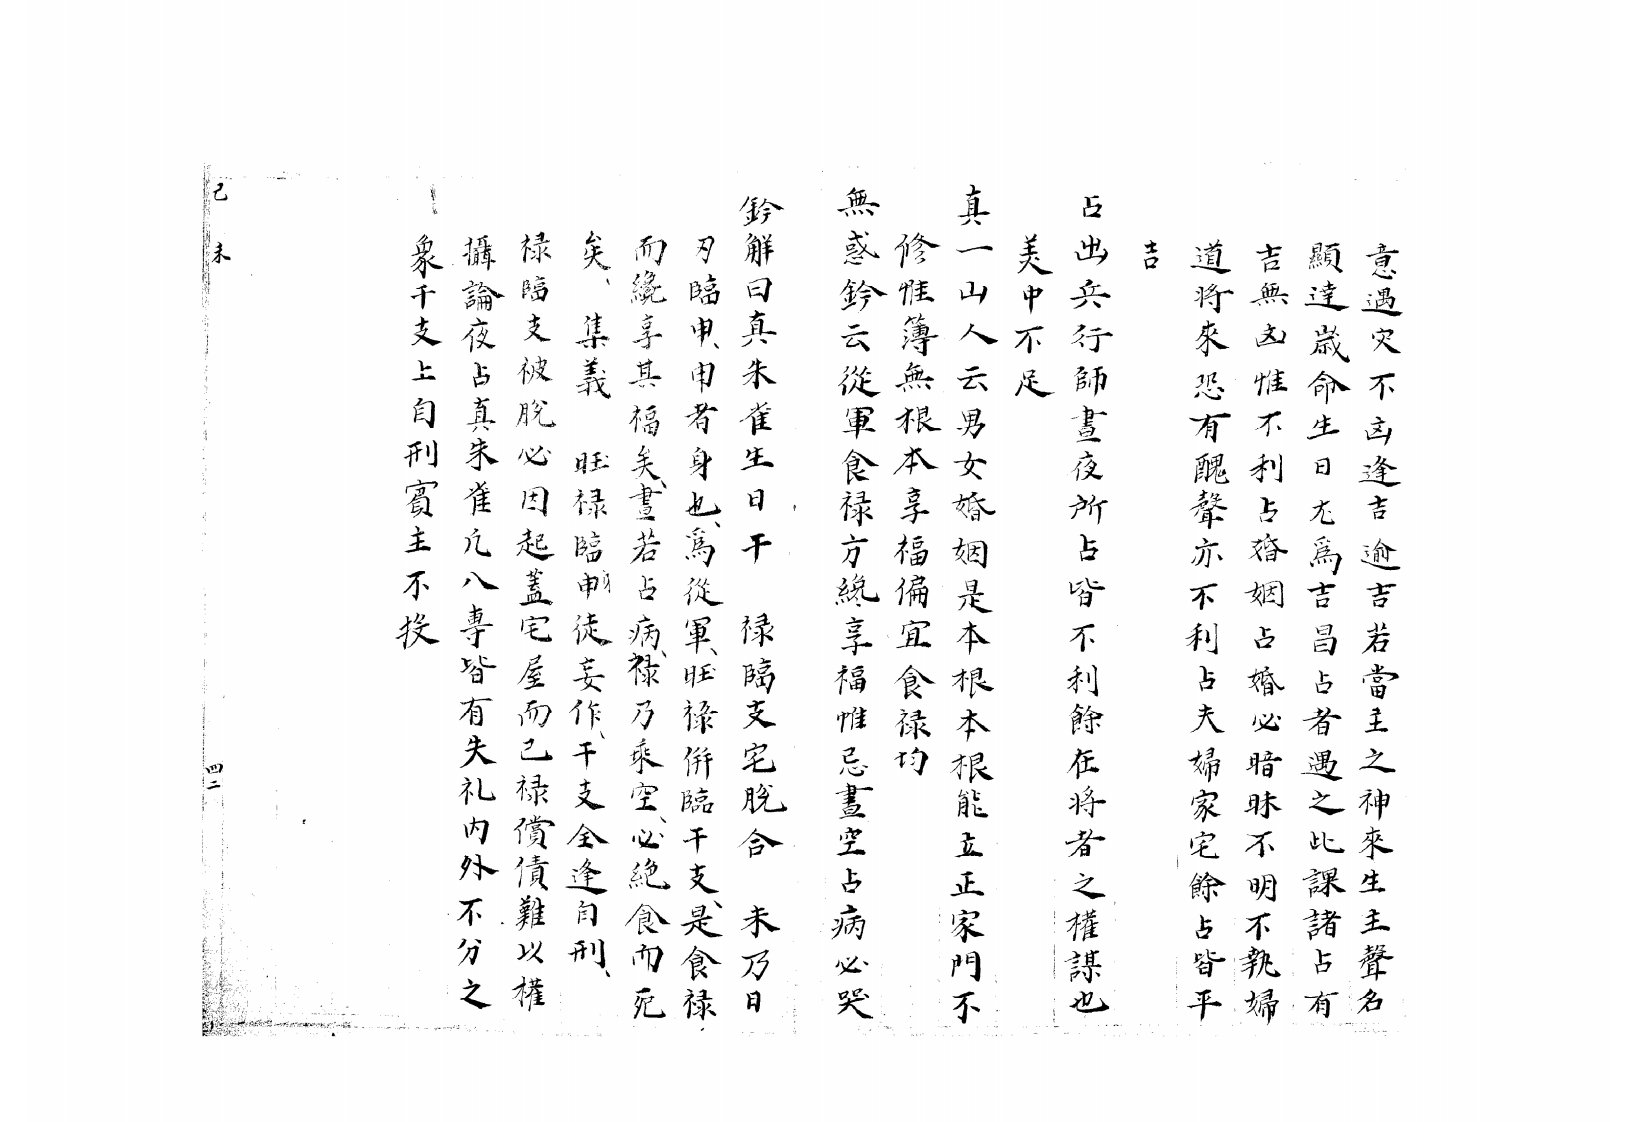 意遇灾不凶逢吉逾吉若當主之神來生主聲名
顯達歲命生日尤爲吉昌占者遇之此課諸占有
吉無凶惟不利占婚姻占婚必暗昧不明不執婦
道將來恐有醜聲亦不利占夫婦家宅餘占皆平
吉
占出兵行師晝夜所占皆不利餘在將者之權謀也
美中不足
真一山人云男女婚姻是本根本根能立正家門不
修惟簿無根本享福偏宜食禄均
無惑鈐云從軍食禄方纔享福惟忌晝空占病必哭
鈐解曰真朱雀生日干 禄臨支宅脫合 未乃日
刃臨申、申者身也、爲從軍、旺禄併臨干支、是食禄
而纔享其福矣、晝若占病、禄乃乘空、必絶食而死
矣、集義 旺禄臨申徒妄作、干支全逢自刑、
禄臨支被脫必因起蓋宅屋而已禄償債難以權
攝論夜占真朱雀凢八專皆有失礼内外不分之
象干支上自刑賓主不投
己未
四二